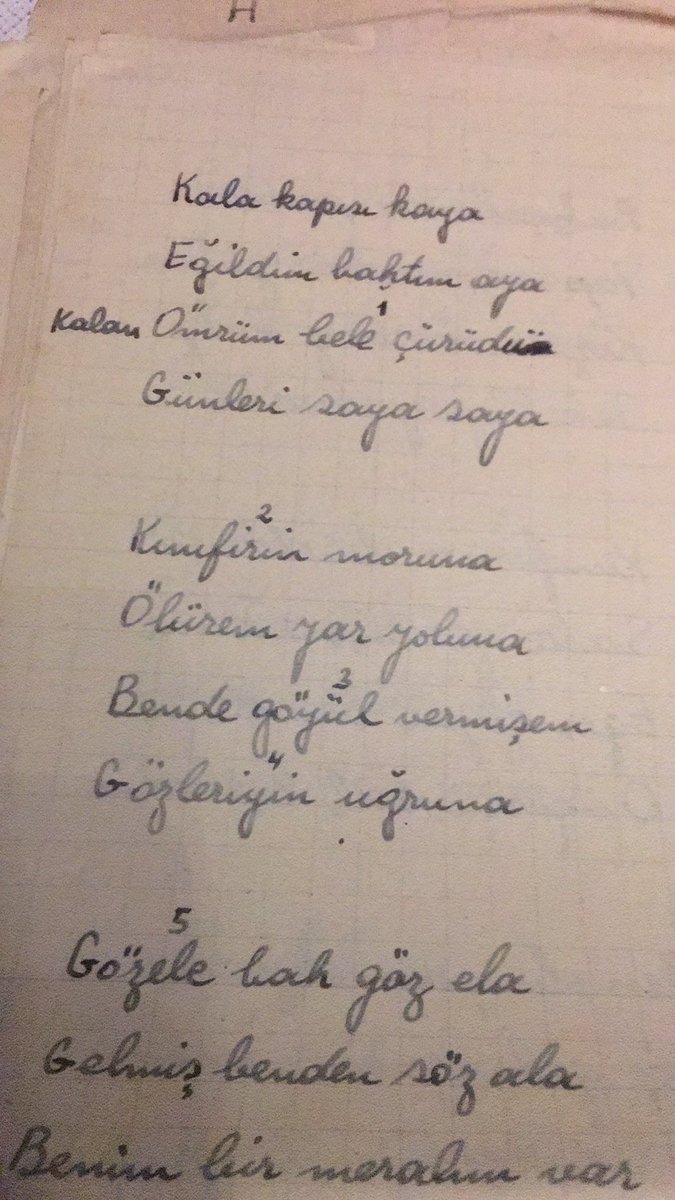 A
Kala kapısı kaya
Eğildim bahtım aya
Kalan Ömrüm bele¹ çürüdü
Günleri saya saya
Kınıfirin² moruna
Ölürem yar yoluna
Bende göyül³ vermişem
Gözleriyin⁴ uğruna
Gözele⁵ bah göz ela
Gelmiş benden söz ala
Benim bir merahım var